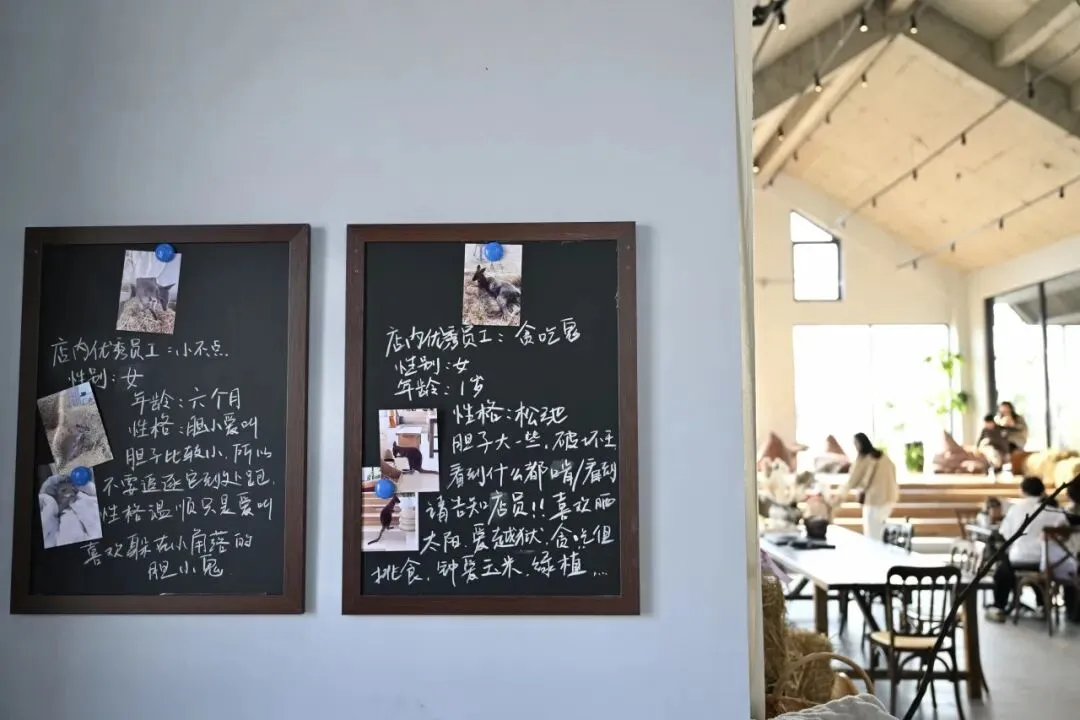 店内优秀员工:小不点.
性别:女
年龄:六个月
性格:胆小爱叫
胆子比较小.所以
不要追逐它到处跑.
性格温顺只是爱叫
喜欢躲在小角落的
胆小鬼
店内优秀员工:贪吃鬼
性别:女
年龄:1岁
性格:松弛
胆子大一些.破坏王
看到什么都啃/看到
请告知店员!!喜欢晒
太阳.爱越狱.贪吃但
挑食.钟爱玉米.绿植...